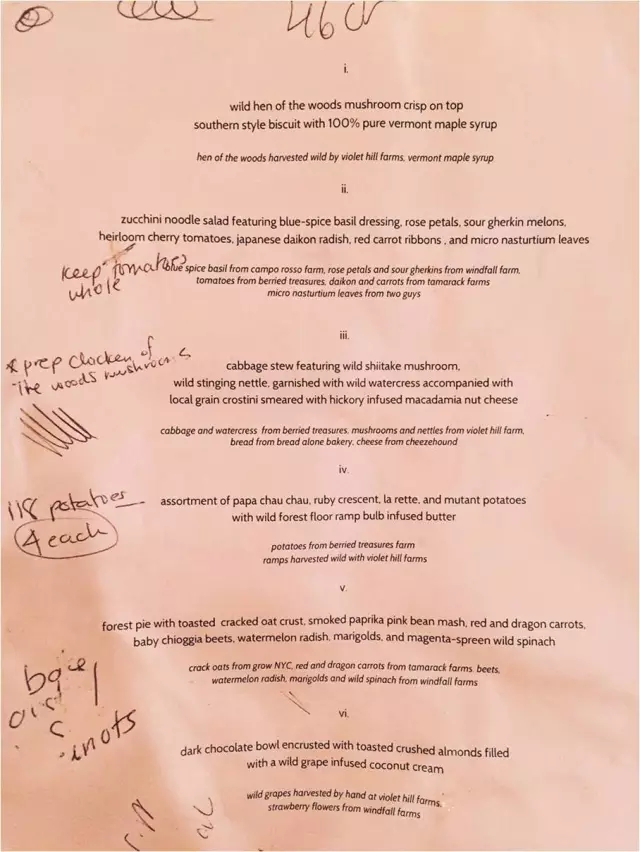 46
i.
wild hen of the woods mushroom crisp on top
southern style biscuit with 100% pure vermont maple syrup
hen of the woods harvested wild by violet hill farms, vermont maple syrup
ii.
zucchini noodle salad featuring blue-spice basil dressing, rose petals, sour gherkin melons,
heirloom cherry tomatoes, japanese daikon radish, red carrot ribbons , and micro nasturtium leaves
keep tomatoes
whole
blue spice basil from campo rosso farm, rose petals and sour gherkins from windfall farm,
tomatoes from berried treasures, daikon and carrots from tamarack farms
micro nasturtium leaves from two guys
iii.
* prep of
The woods mushrooms
cabbage stew featuring wild shiitake mushroom,
wild stinging nettle, garnished with wild watercress accompanied with
local grain crostini smeared with hickory infused macadamia nut cheese
cabbage and watercress from berried treasures, mushrooms and nettles from violet hill farm,
bread from bread alone bakery, cheese from cheezehound
iv.
118 potatoes
4 each
assortment of papa chau chau, ruby crescent, la rette, and mutant potatoes
with wild forest floor ramp bulb infused butter
potatoes from berried treasures farm
ramps harvested wild with violet hill farms
v.
forest pie with toasted cracked oat crust, smoked paprika pink bean mash, red and dragon carrots,
baby chioggia beets, watermelon radish, marigolds, and magenta-spreen wild spinach
crack oats from grow NYC, red and dragon carrots from tamarack farms, beets,
watermelon radish, marigolds and wild spinach from windfall farms
vi.
dark chocolate bowl encrusted with toasted crushed almonds filled
with a wild grape infused coconut cream
wild grapes harvested by hand at violet hill farms,
strawberry flowers from windfall farms